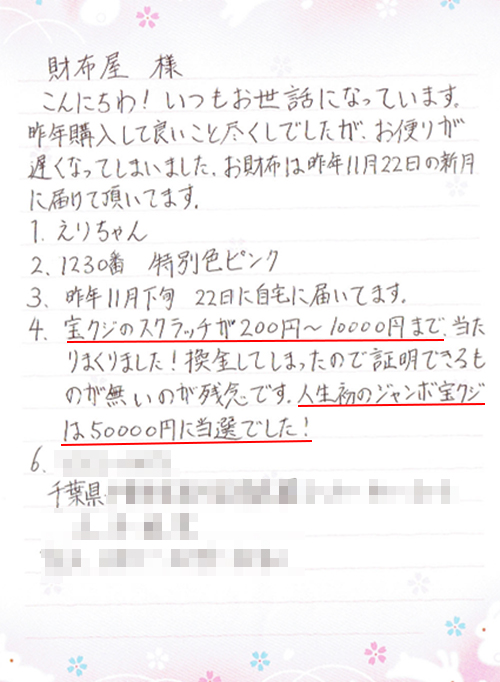 財布屋 様
こんにちわ！いつもお世話になっています。
昨年購入して良いこと尽くしでしたが、お便りが
遅くなってしまいました。お財布は昨年11月22日の新月
に届けて頂いてます。
1. えりちゃん
2. 1230番 特別色ピンク
3. 昨年11月下旬 22日に自宅に届いてます。
4. 宝クジのスクラッチが200円～10000円まで、当た
りまくりました！換金してしまったので証明できるも
のが無いのが残念です。人生初のジャンボ宝クジ
は50000円に当選でした！
6.
千葉県